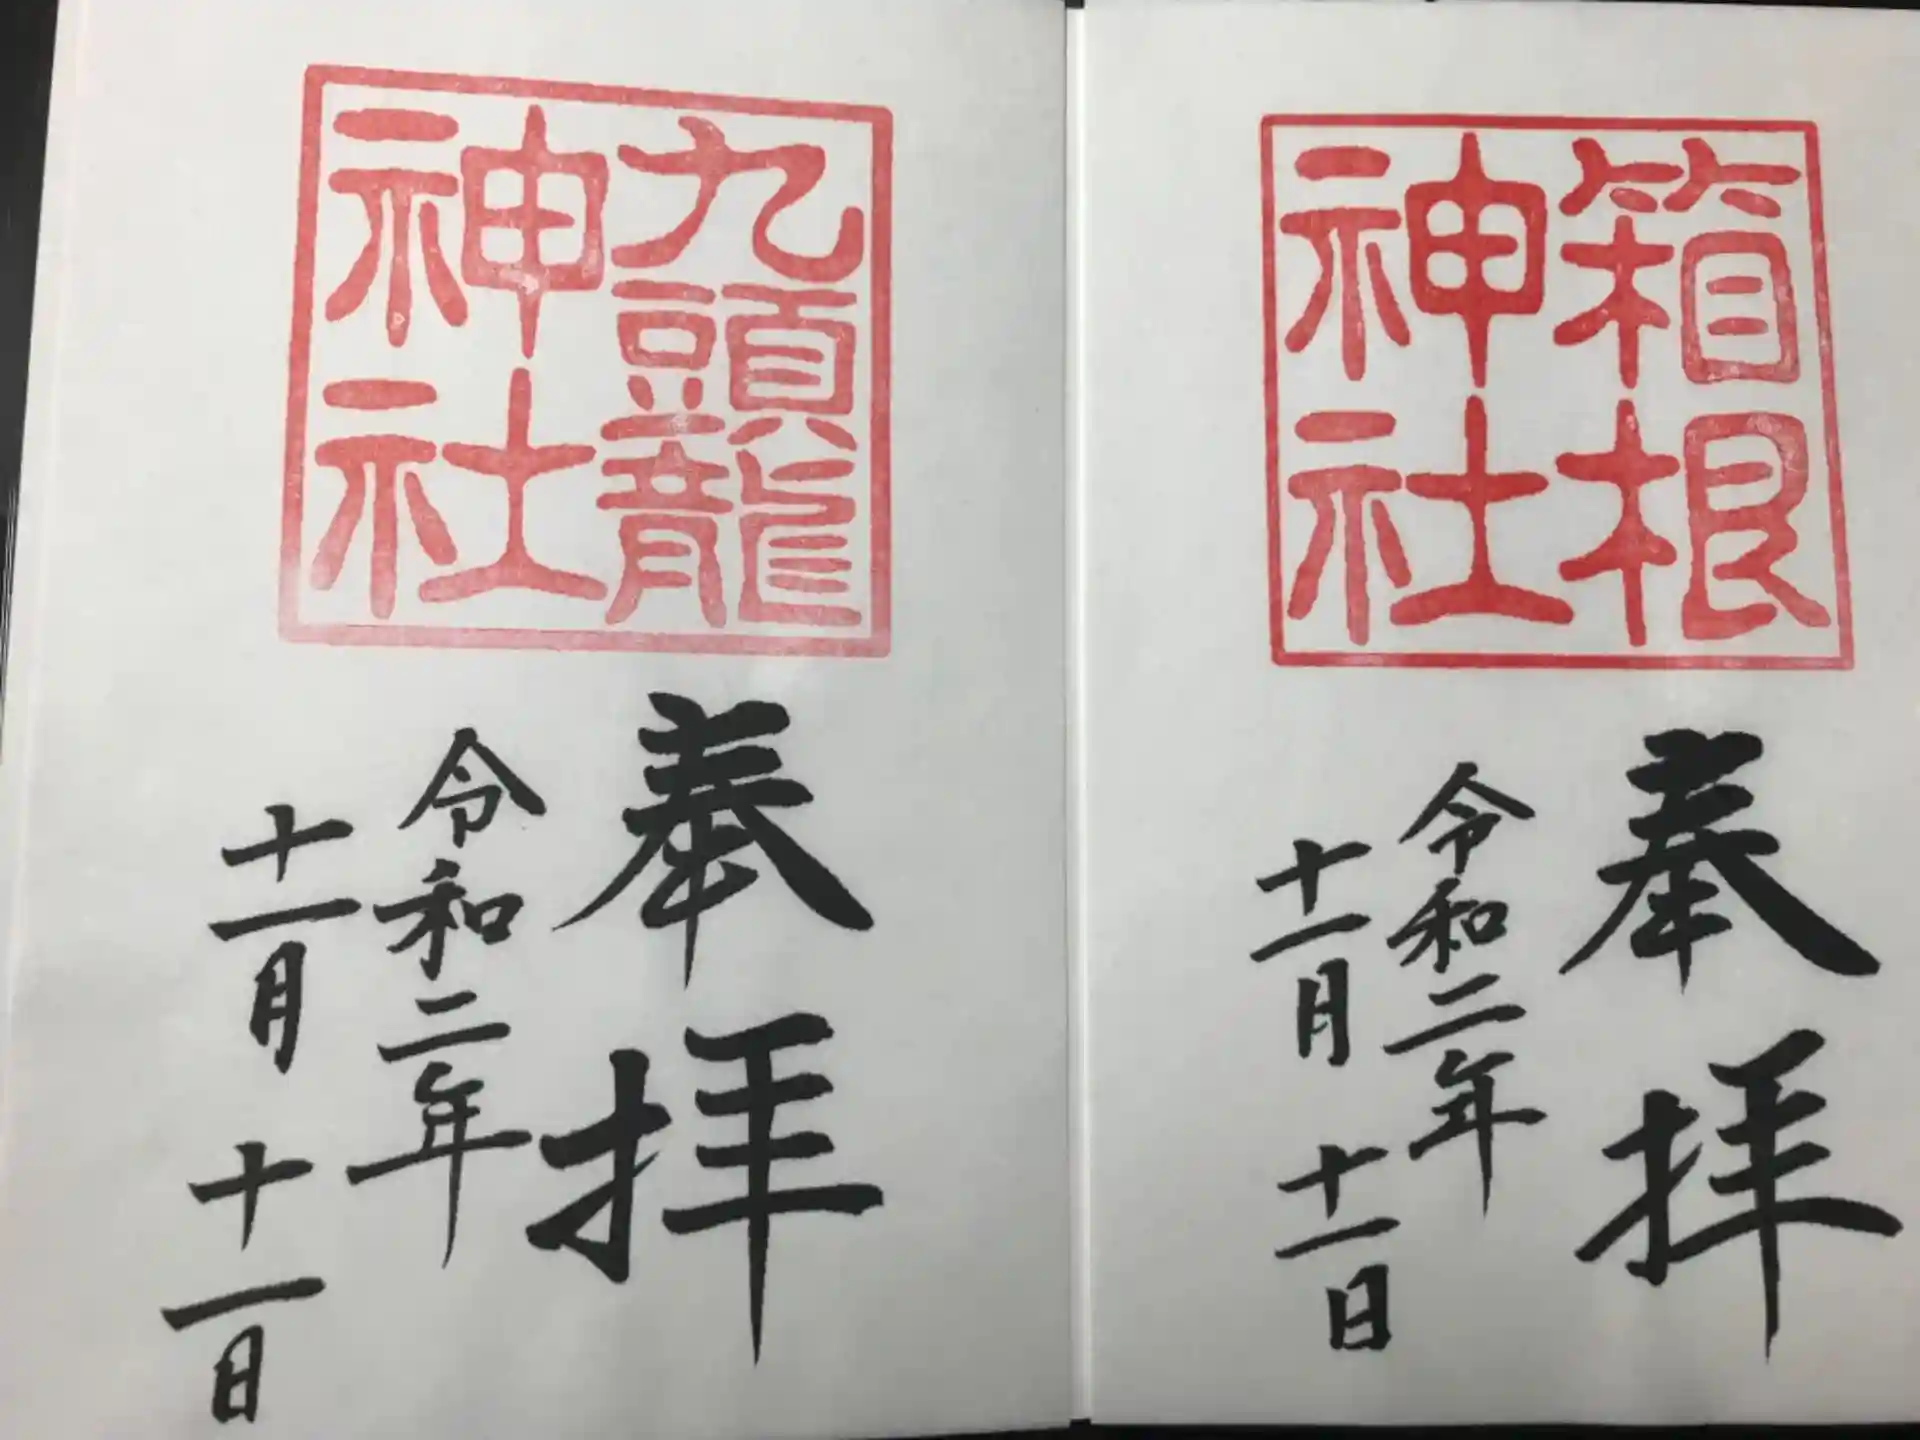 箱根
神社
奉拝
令和二年
十一月十一日
九頭龍
神社
奉拝
令和二年
十一月十一日